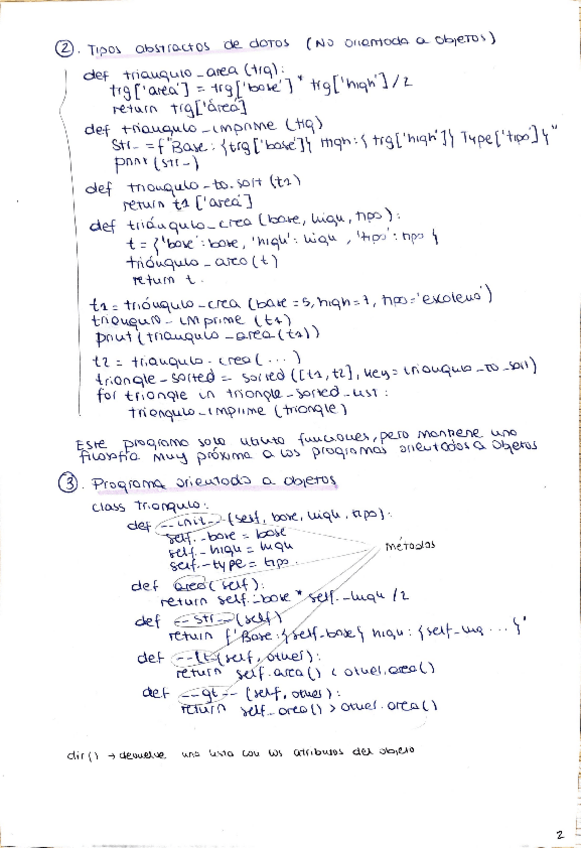 ② . Tipos abstractos de datos (No orientada a objetos)
def triangulo_area (trg):
trg['area'] = trg['base'] * trg['high'] / 2
return trg['área']
def triangulo_imprime (trg)
str_ = f"Base: {trg['base']} high: {trg['high']} Type['tipo']}"
print (str_)
def triangulo_to_sort (t1)
return t1 ['area']
def triángulo_crea (base, high, tipo):
t = {'base': base, 'high': high, 'tipo': tipo {
triángulo_area (t)
return t.
t1 = triángulo_crea (base = 5, high = 7, tipo = 'escaleno')
triangulo_imprime (t1)
print (triangulo_area (t1))
t2 = triangulo_crea (...)
triangle_sorted = sorted ([t1, t2], key = triangulo_to_sort)
for triangle in triangle_sorted_list:
triangulo_imprime (triangle)
Este programa solo utiliza funciones, pero mantiene una
filosofía muy próxima a los programas orientados a objetos
③ . Programa orientado a objetos
class triangulo:
def __init__ (self, base, high, tipo):
self._base = base
self._high = high
self._type = tipo.
métodos
def area (self):
return self._base * self._high / 2
def __str__ (self)
return f'Base: {self._base} high: {self._hig ... {'
def __lt (self, other):
return self.area() < other.area()
def __gt__ (self, other):
return self_area() > other.area()
dir() → devuelve una lista con los atributos del objeto
2